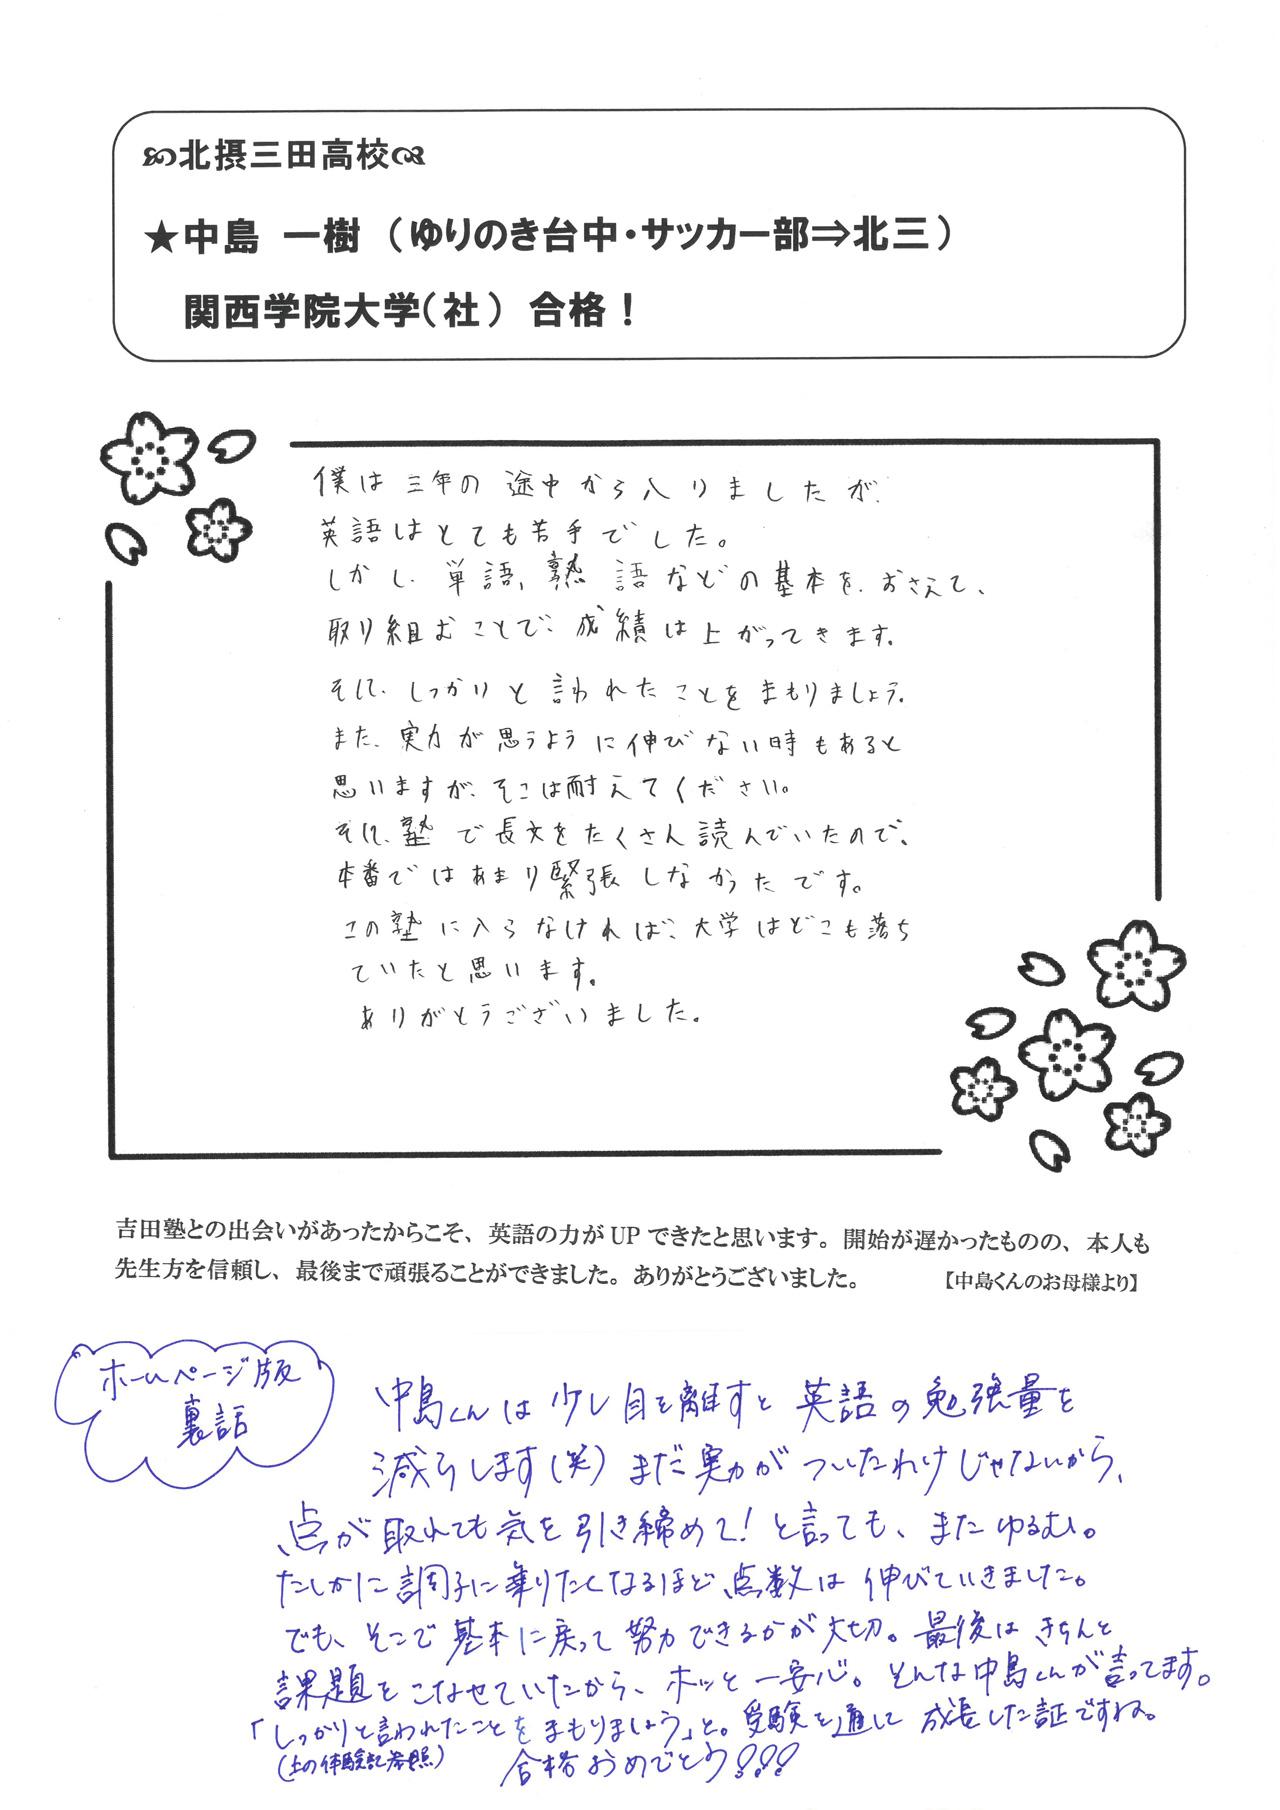 北摂三田高校
★中島 一樹（ゆりのき台中・サッカー部⇒北三）
関西学院大学（社） 合格！
僕は三年の途中から入りましたが、
英語はとても苦手でした。
しかし、単語、熟語などの基本を、おさえて、
取り組むことで、成績は上がってきます。
そして、しっかりと言われたことをまもりましょう。
また、実力が思うように伸びない時もあると
思いますが、そこは耐えてください。
そして、塾で長文をたくさん読んでいたので、
本番ではあまり緊張しなかったです。
この塾に入らなければ、大学はどこも落ち
ていたと思います。
ありがとうございました。
吉田塾との出会いがあったからこそ、英語の力がUPできたと思います。開始が遅かったものの、本人も
先生方を信頼し、最後まで頑張ることができました。ありがとうございました。 【中島くんのお母様より】
ホームページ版
裏話
中島くんは少し目を離すと英語の勉強量を
減らします（笑）まだ実力がついたわけじゃないから、
点が取れても気を引き締めて！と言っても、またゆるむ。
たしかに調子に乗りたくなるほど点数は伸びていきました。
でも、そこで基本に戻って努力できるかが大切。最後はきちんと
課題をこなせていたから、ホッと一安心。そんな中島くんが言ってます。
「しっかりと言われたことをまもりましょう」と。受験を通して成長した証ですね。
（上の体験記参照） 合格おめでとう！！！